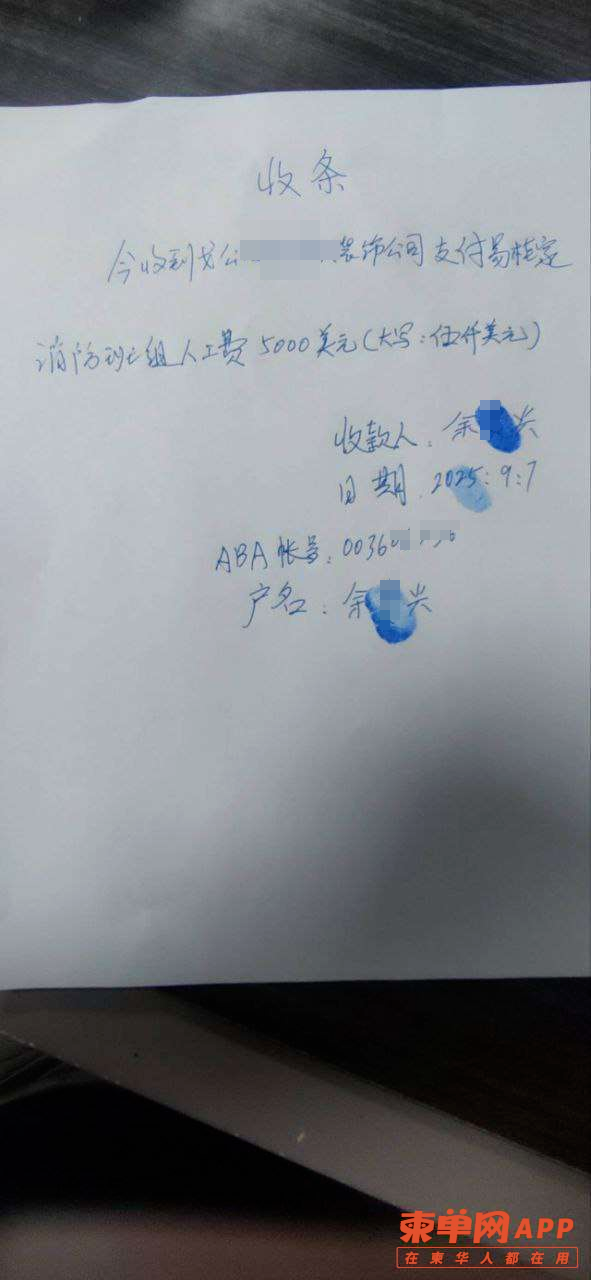 收条
今收到戈公 装饰公司支付易桂定
消防班组人工费5000美元(大写:伍仟美元)
收款人:余 兴
日期.2025:9:7
ABA帐号:0036
户名:余 兴
柬单网APP
在柬华人都在用